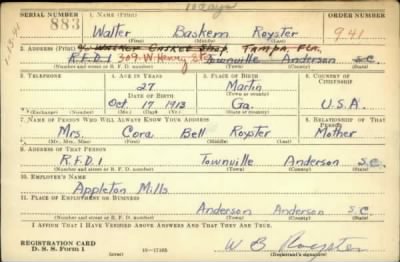 10 days
SERIAL NUMBER 1. NAME (Print) ORDER NUMBER
883 Walter Baskern Royster 941
1-13-41
% Walker Casket Shop, Tampa, Fla.
2. ADDRESS (Print)
R.F.D. 1 309 W. Henry St. Townville Anderson S.C.
(Number and street or R. F. D. number) (Town) (County) (State)
3. TELEPHONE 4. AGE IN YEARS 5. PLACE OF BIRTH 6. COUNTRY OF CITIZENSHIP
27 Martin
DATE OF BIRTH
Oct. 17 1913 Ga. U.S.A.
(Exchange) (Number) (Mo.) (Day) (Yr.) (State or country)
7. NAME OF PERSON WHO WILL ALWAYS KNOW YOUR ADDRESS 8. RELATIONSHIP OF THAT PERSON
Mrs. Cora Bell Royster Mother
(Mr., Mrs., Miss) (First) (Middle) (Last)
9. ADDRESS OF THAT PERSON
R.F.D. 1 Townville Anderson S.C.
(Number and street or R. F. D. number) (Town) (County) (State)
10. EMPLOYER'S NAME
Appleton Mills
11. PLACE OF EMPLOYMENT OR BUSINESS
Anderson Anderson S.C.
(Number and street or R. F. D. number) (Town) (County) (State)
I AFFIRM THAT I HAVE VERIFIED ABOVE ANSWERS AND THAT THEY ARE TRUE.
REGISTRATION CARD
D. S. S. Form 1 16-17105 W B Royster
(over) (Registrant's signature)